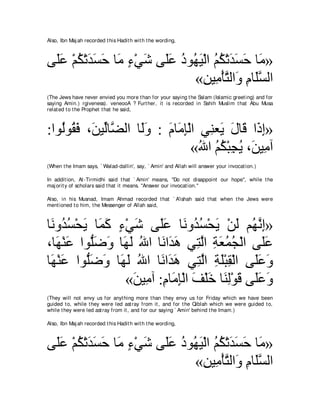 Also, Ibn Majah recorded this Hadith with the wording,
«مَا حَسَدَتْكُمُ الْيَهُودُ عَلَى شَيْءٍ مَا حَسَدَتْكُمْ عَلَى
السَّلَامِ وَالتَّأْمِينِ»
(The Jews have never envied you more than for your saying the Salam (Islamic greeting) and for
saying Amin.) rgiveness). venvooA ? Further, it is recorded in Sahih Muslim that Abu Musa
related to the Prophet that he said,
«إِذَا قَالَ يَعْنِي الْإِمَامَ : وَلَا الضَّالِّينَ، فَقُولُوا:
آمِينَ، يُجِبْكُمُ اللهُ»
(When the Imam says, `Walad-dallin', say, `Amin' and Allah will answer your invocation.)
In addition, At-Tirmidhi said that `Amin' means, "Do not disappoint our hope", while the
majority of scholars said that it means. "Answer our invocation."
Also, in his Musnad, Imam Ahmad recorded that `A'ishah said that when the Jews were
mentioned to him, the Messenger of Allah said,
«إِنَّهُمْ لَنْ يَحْسُدُونَا عَلَى شَيْءٍ كَمَا يَحْسُدُونَا
عَلَى الْجُمُعَةِ الَّتِي هَدَانَا اللهُ لَهَا وَضَلُّوا عَنْهَا،
وَعَلَى الْقِبْلَةِ الَّتِي هَدَانَا اللهُ لَهَا وَضَلُّوا عَنْهَا
وَعَلَى قَوْلِنَا خَلْفَ الْإِمَامِ: آمِينَ»
(They will not envy us for anything more than they envy us for Friday which we have been
guided to, while they were led astray from it, and for the Qiblah which we were guided to,
while they were led astray from it, and for our saying `Amin' behind the Imam.)
Also, Ibn Majah recorded this Hadith with the wording,
«مَا حَسَدَتْكُمُ الْيَهُودُ عَلَى شَيْءٍ مَا حَسَدَتْكُمْ عَلَى
السَّلَامِ وَالتَّأْمِينِ»